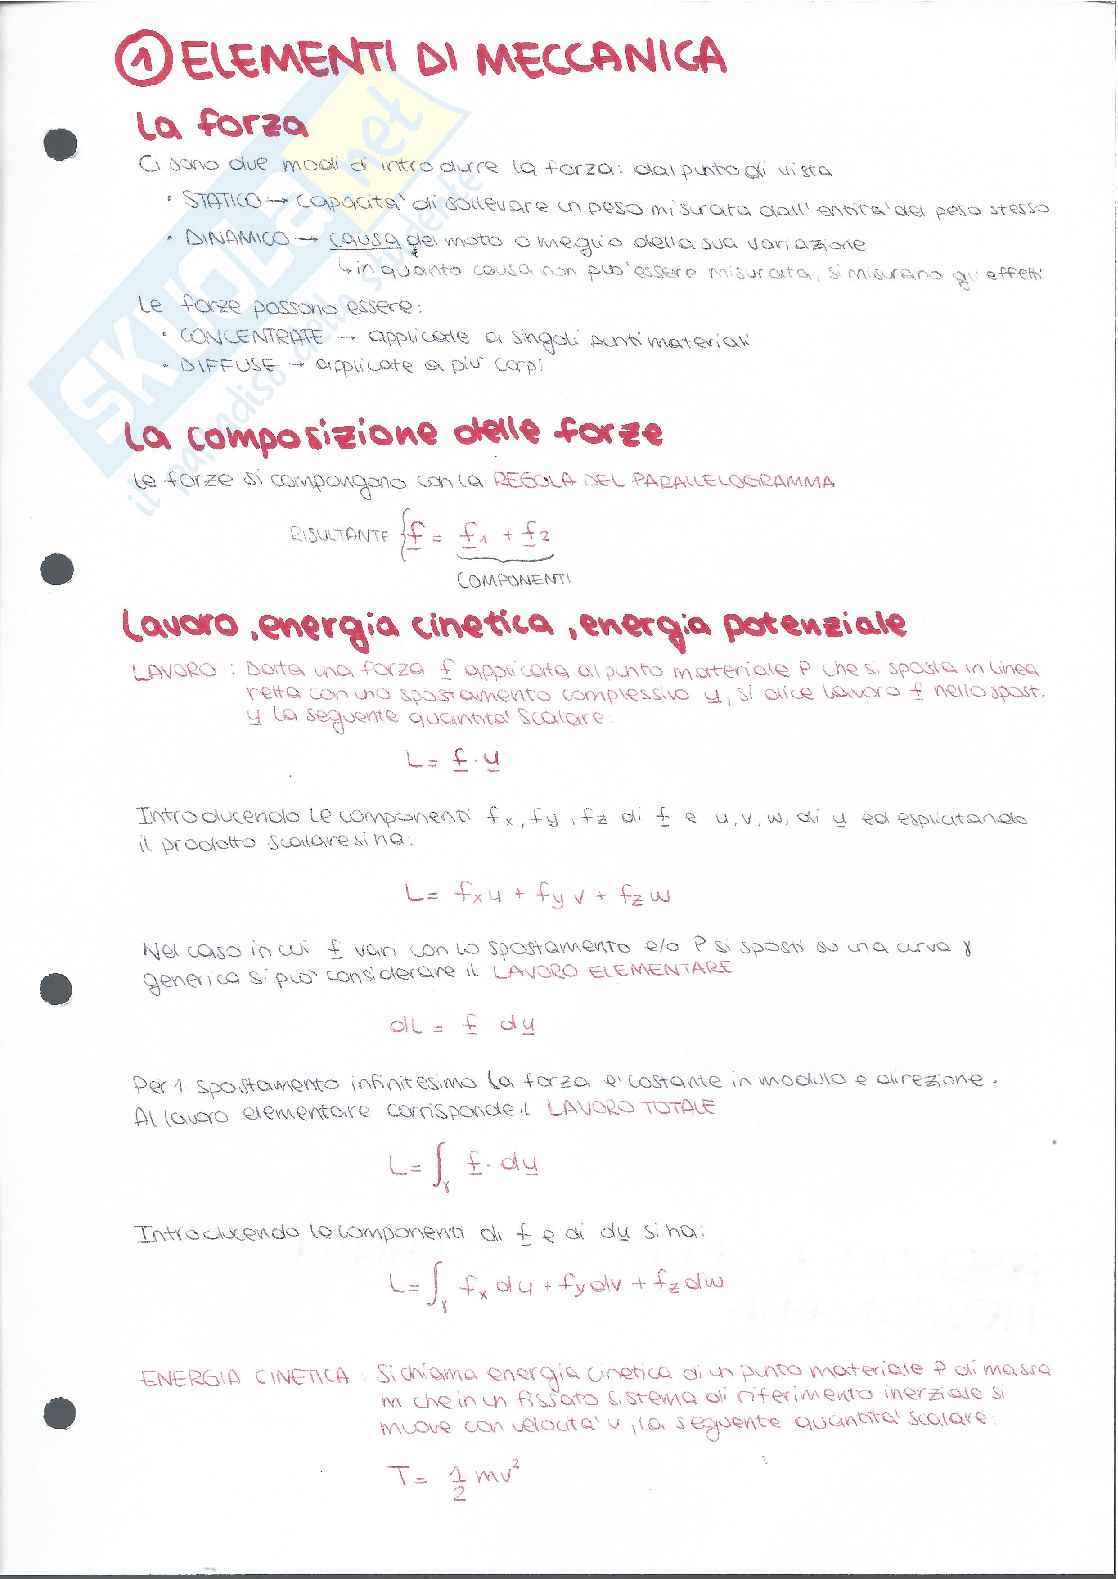 ① ELEMENTI DI MECCANICA
La forza
Ci sono due modi di introdurre la forza: dal punto di vista
• STATICO → capacita' di sollevare un peso misurata dall'entita' del peso stesso
• DINAMICO → causa del moto o meglio della sua variazione
↳ in quanto causa non puo' essere misurata, si misurano gli effetti
Le forze possono essere:
• CONCENTRATE → applicate a singoli punti materiali
• DIFFUSE → applicate a piu' corpi
La composizione delle forze
Le forze si compongono con la REGOLA DEL PARALLELOGRAMMA
RISULTANTE { f = f1 + f2
COMPONENTI
Lavoro, energia cinetica, energia potenziale
LAVORO : Data una forza f applicata al punto materiale P che si sposta in linea
retta con uno spostamento complessivo u, si dice lavoro f nello spost.
u la seguente quantita' scalare:
L = f · u
Introducendo le componenti fx, fy, fz di f e u, v, w, di u ed esplicitando
il prodotto scalare si ha:
L = fx u + fy v + fz w
Nel caso in cui f vari con lo spostamento e/o P si sposti su una curva γ
generica si puo' considerare il LAVORO ELEMENTARE
dL = f du
Per 1 spostamento infinitesimo la forza e' costante in modulo e direzione.
Al lavoro elementare corrisponde il LAVORO TOTALE
L = ∫γ f · du
Introducendo le componenti di f e di du si ha:
L = ∫γ fx du + fy dv + fz dw
ENERGIA CINETICA : Si chiama energia cinetica di un punto materiale P di massa
m che in un fissato sistema di riferimento inerziale si
muove con velocita' v, la seguente quantita' scalare:
T = 1/2 mv²
SKUOLA.net
il paradiso dello studente